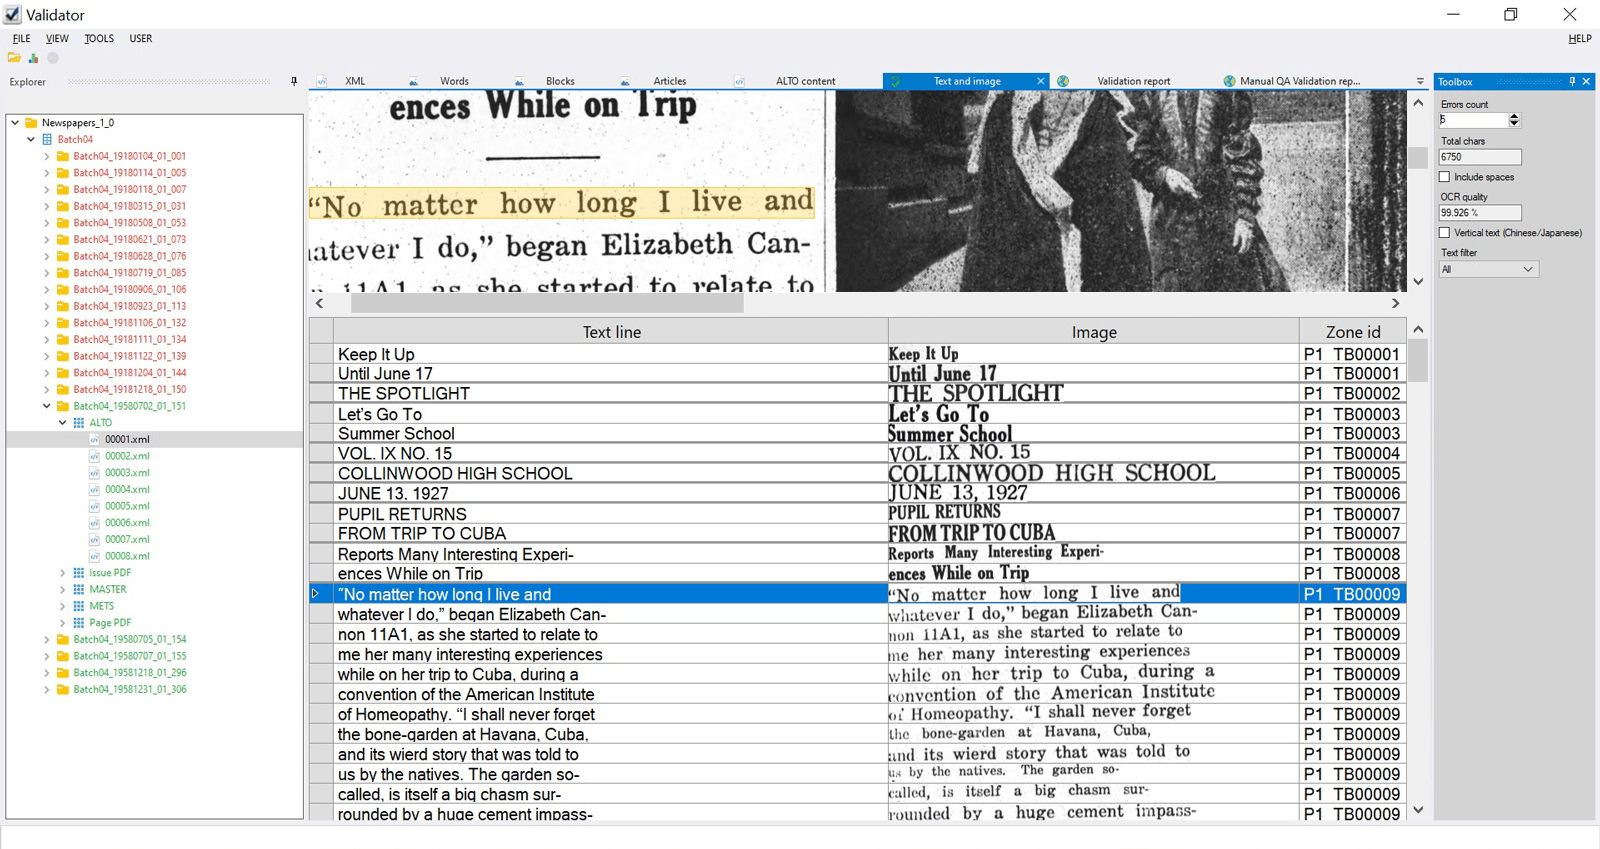 Validator
FILE VIEW TOOLS USER HELP
Explorer
XML Words Blocks Articles ALTO content Text and image Validation report Manual QA Validation rep...
Toolbox
Newspapers_1_0
Batch04
Batch04_19180104_01_001
Batch04_19180114_01_005
Batch04_19180118_01_007
Batch04_19180315_01_031
Batch04_19180508_01_053
Batch04_19180621_01_073
Batch04_19180628_01_076
Batch04_19180719_01_085
Batch04_19180906_01_106
Batch04_19180923_01_113
Batch04_19181106_01_132
Batch04_19181111_01_134
Batch04_19181122_01_139
Batch04_19181204_01_144
Batch04_19181218_01_150
Batch04_19580702_01_151
ALTO
00001.xml
00002.xml
00003.xml
00004.xml
00005.xml
00006.xml
00007.xml
00008.xml
Issue PDF
MASTER
METS
Page PDF
Batch04_19580705_01_154
Batch04_19580707_01_155
Batch04_19581218_01_296
Batch04_19581231_01_306
ences While on Trip
“No matter how long I live and
hatever I do,” began Elizabeth Can-
n 11A1, as she started to relate to
Text line Image Zone id
Keep It Up Keep It Up P1_TB00001
Until June 17 Until June 17 P1_TB00001
THE SPOTLIGHT THE SPOTLIGHT P1_TB00002
Let's Go To Let's Go To P1_TB00003
Summer School Summer School P1_TB00003
VOL. IX NO. 15 VOL. IX NO. 15 P1_TB00004
COLLINWOOD HIGH SCHOOL COLLINWOOD HIGH SCHOOL P1_TB00005
JUNE 13, 1927 JUNE 13, 1927 P1_TB00006
PUPIL RETURNS PUPIL RETURNS P1_TB00007
FROM TRIP TO CUBA FROM TRIP TO CUBA P1_TB00007
Reports Many Interesting Experi- Reports Many Interesting Experi- P1_TB00008
ences While on Trip ences While on Trip P1_TB00008
"No matter how long I live and “No matter how long I live and P1_TB00009
whatever I do,” began Elizabeth Can- whatever I do,” began Elizabeth Can- P1_TB00009
non 11A1, as she started to relate to non 11A1, as she started to relate to P1_TB00009
me her many interesting experiences me her many interesting experiences P1_TB00009
while on her trip to Cuba, during a while on her trip to Cuba, during a P1_TB00009
convention of the American Institute convention of the American Institute P1_TB00009
of Homeopathy. “I shall never forget of Homeopathy. “I shall never forget P1_TB00009
the bone-garden at Havana, Cuba, the bone-garden at Havana, Cuba, P1_TB00009
and its wierd story that was told to and its wierd story that was told to P1_TB00009
us by the natives. The garden so- us by the natives. The garden so- P1_TB00009
called, is itself a big chasm sur- called, is itself a big chasm sur- P1_TB00009
rounded by a huge cement impass- rounded by a huge cement impass- P1_TB00009
Errors count
5
Total chars
6750
Include spaces
OCR quality
99.926 %
Vertical text (Chinese/Japanese)
Text filter
All